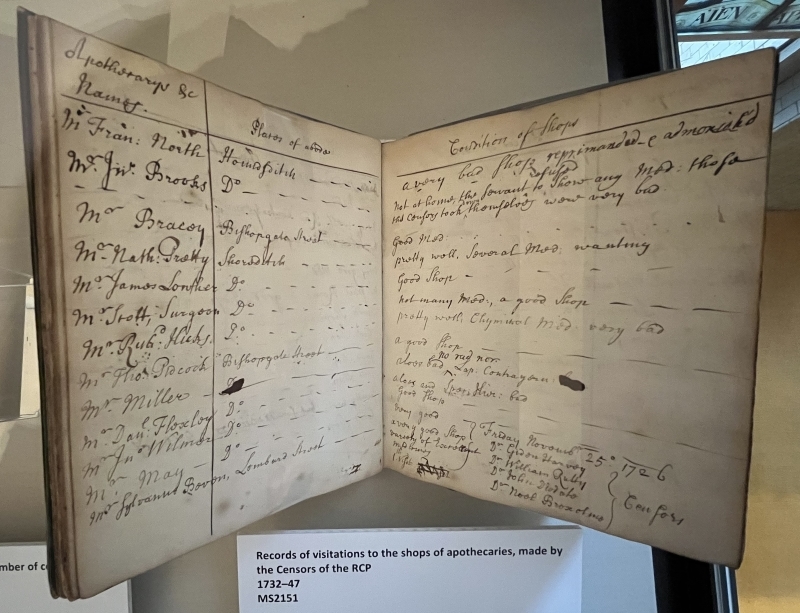 Apothecarys &c
Names.
Places of abode
Mr. Fran: North
Houndsditch
Mr. Jno. Brooks
Do
Mr Bracey
Bishopsgate Street
Mr. Nath: Pretty
Shoreditch
Mr. James
Do
Mr. Scott, Surgeon
Do
Mr. Hicks.
Do
Mr Tho: Pidcock
Bishopsgate Street
Mr. Miller
Mr. Danl.
Do
Mr Jno Wilmer
Do
Mr. May
Do
Mr Sylvanus Bevan, Lombard Street
Condition of Shops
a very bad Shop reprimanded & admonish'd
not at home, the Servant refused to Show any Med: those
the Censors took themselves were very bad
Good Med:
pretty well. Several Med: wanting
Good Shop
not many Med:, a good Shop
pretty well, Chymical Med: very bad
a good Shop
no
aloes bad
aloes and bad
Good Shop
very good
a very good Shop
variety of
Friday Novemb 25o 1726
Dr Gideon Harvey
Dr William
Dr John
Dr Noel Broxolme
Censors
Records of visitations to the shops of apothecaries, made by
the Censors of the RCP
1732–47
MS2151
mber of c